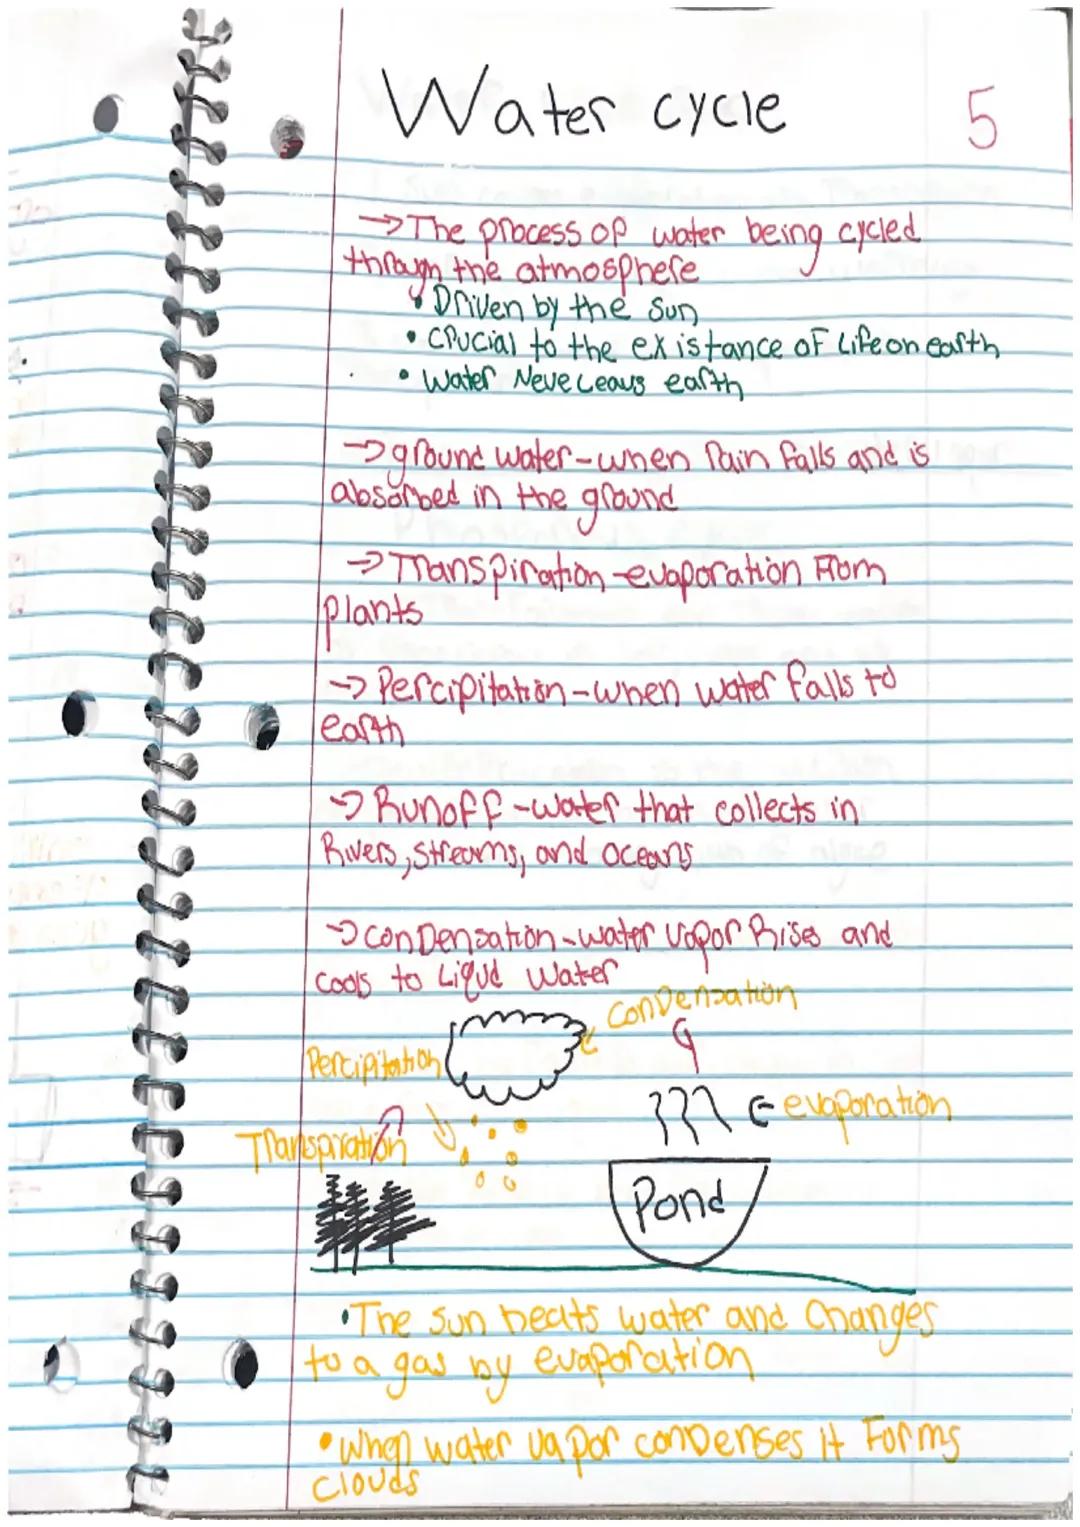 Water cycle 5
→The process of water being cycled
through the atmosphere
• Driven by the sun
• Crucial to the existance of Life on earth
• Water Neve Leavs earth
→ground water-when rain falls and is
absorbed in the ground
→Transpiration-evaporation From
plants
→Percipitation-when water falls to
earth
→Runoff-water that collects in
Rivers, streams, and oceans
→conDensation-water vapor Rises and
cools to Liqud water
conDensation
Percipitation
evaporation
Transpiration
Pond
•The sun heats water and changes
to a gas by evaporation
•when water vapor conDenses it Forms
clouds